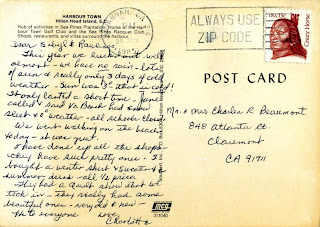 HARBOUR TOWN
Hilton Head Island, S.C.
Hub of activities in Sea Pines Plantation. Home of the Harbour Town Golf Club and the Sea Pines Racquet Club. Shops, restaurants, and villas surround the harbour.
ALWAYS USE
ZIP CODE
USA 13c
Crazy Horse
POST CARD
Dear Sibyl & Paul
This year we lucked out well
almost - we have no rain - lots
of sun & really only 3 days of cold
weather - Sun was 3 - that is cold!
It only lasted a short time - Jane
called & said Va. Beach had snow
sleet & 0° weather - all schools closed.
We went walking on the beach
today - it was great.
I have done up all the shops -
they have such pretty ones - I
bought a winter skirt & sweater & a
summer dress - all ½ price.
They had a quilt show that we
took in - they really had some
beautiful ones - very old & new -
Hi to everyone Love
Charlotte
Mr. & Mrs Charles R Beaumont
848 Atlanta Ct.
Claremont
CA 91711